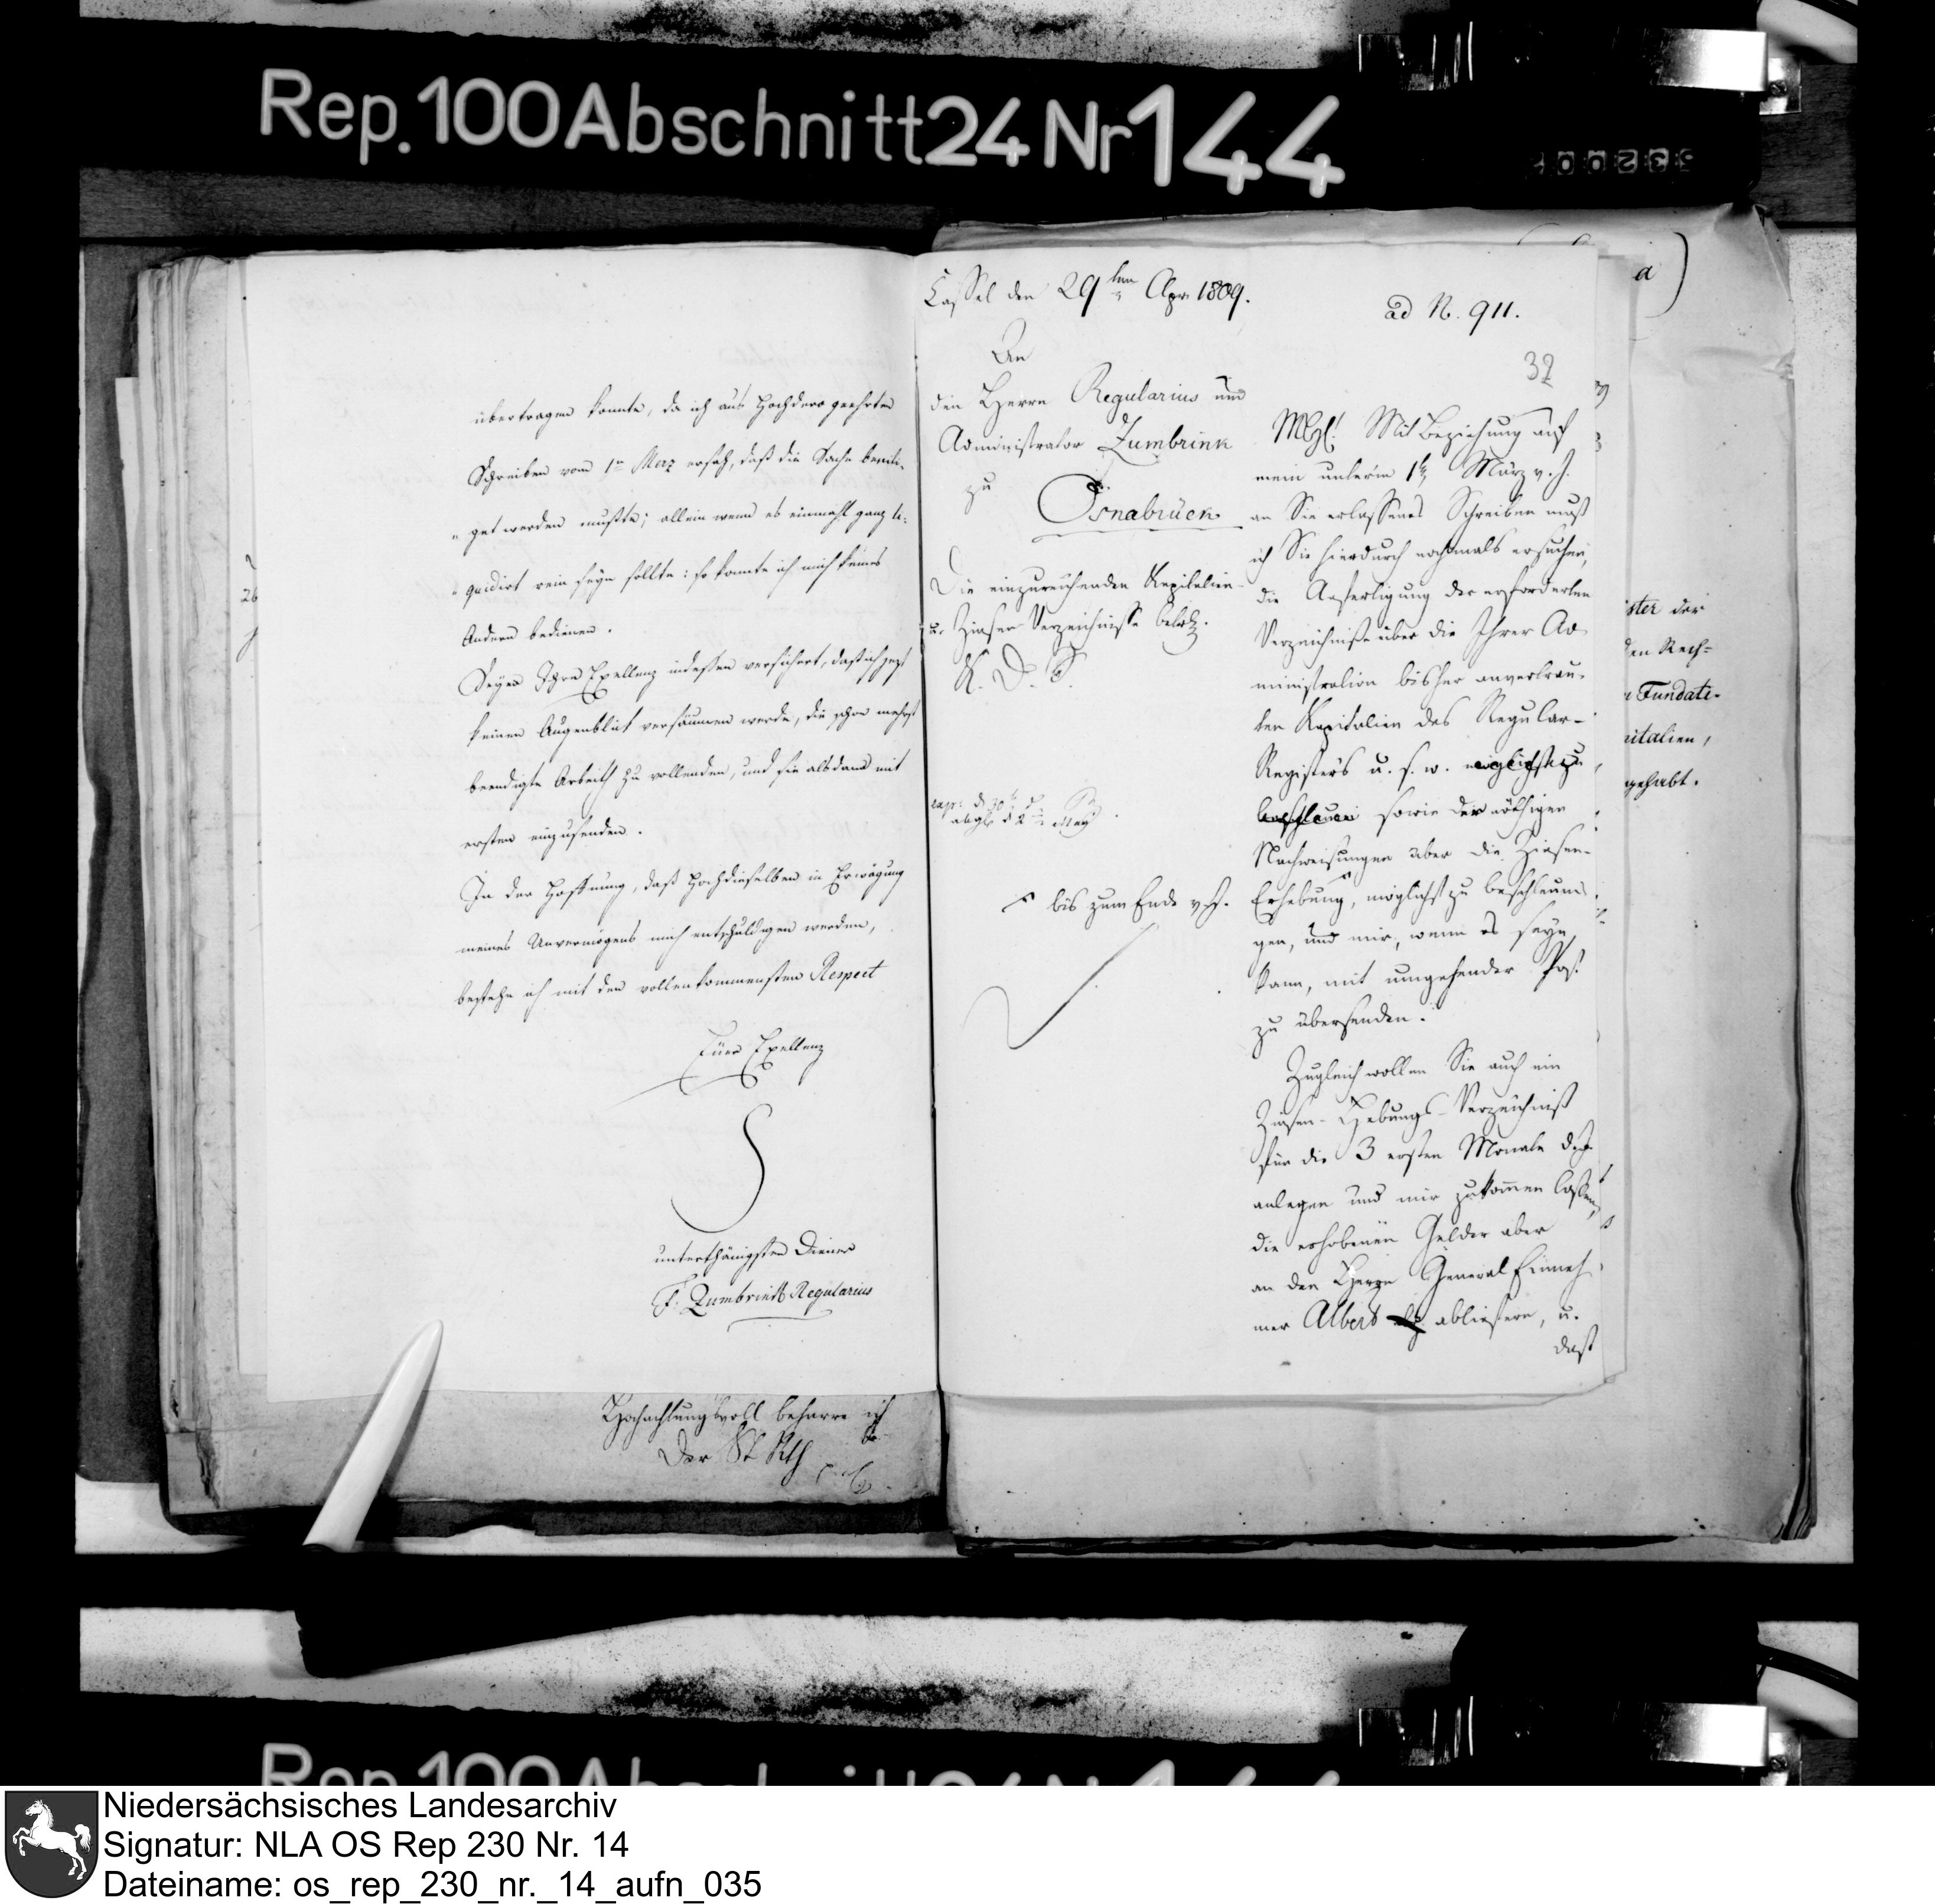 Rep. 100 Abschnitt 24 Nr 144
übertragen konnte, da ich aus Hochdero geehrten
Schreiben vom 1ten Merz ersah, daß die Sache beeili-
get werden mußte; allein wenn es einmahl ganz li-
quidirt rein seyn sollte: so konnte ich mich keines
Andern bedienen.
Seyen Ihre Exellenz indeßen versichert, daß ich jezt
keinen Augenblick versäumen werde, die schon mehrst
beendigte Arbeith zu vollenden, und sie alsdann mit
ersten einzusenden.
In der Hoffnung, daß Hochdieselben in Erwägung
meines Unvermögens mich entschuldigen werden,
bestehe ich mit den vollenkommensten Respect
Euer Exellenz
unterthänigsten Diener
F. Zumbrink Regularius
Hochachtungsvoll beharre ich
Der St Rth
Cassel den 29ten Apr 1809.
ad N. 911.
32
An
den Herrn Regularius und
Administrator Zumbrink
zu
Osnabrück
Die einzureichenden Kapitalien
u. Zinsen Verzeichnisse betr.
K. D. S.
exp: d 30t
abgl d 2t May
bis zum Ende v. J.
Mit Beziehung auf
mein unterm 1ten März v. J.
an Sie erlassenes Schreiben muß
ich Sie hierdurch nochmals ersuchen,
die Anfertigung der erforderten
Verzeichniße über die Ihrer Ad-
ministration bisher anvertrau-
ten Kapitalien des Regular-
Registers u. s. w. möglichst zu
beschleuni sowie der nöthigen
Nachweisungen über die Zinsen-
Erhebung, möglichst zu beschleuni-
gen, und mir, wenn es seyn
kann, mit umgehender Post
zu übersenden.
Zugleich wollen Sie auch ein
Zinsen-Hebungs-Verzeichniß
für die 3 ersten Monate d. J.
anlegen und mir zukommen lassen,
die erhobenen Gelder aber
an den Herrn General Einneh-
mer Albers abliefern, u.
daß
a)
ister der
den Rech-
Fundati-
pitalien,
gehabt.
Rep. 100 Abschnitt 24 Nr 144
Niedersächsisches Landesarchiv
Signatur: NLA OS Rep 230 Nr. 14
Dateiname: os_rep_230_nr._14_aufn_035